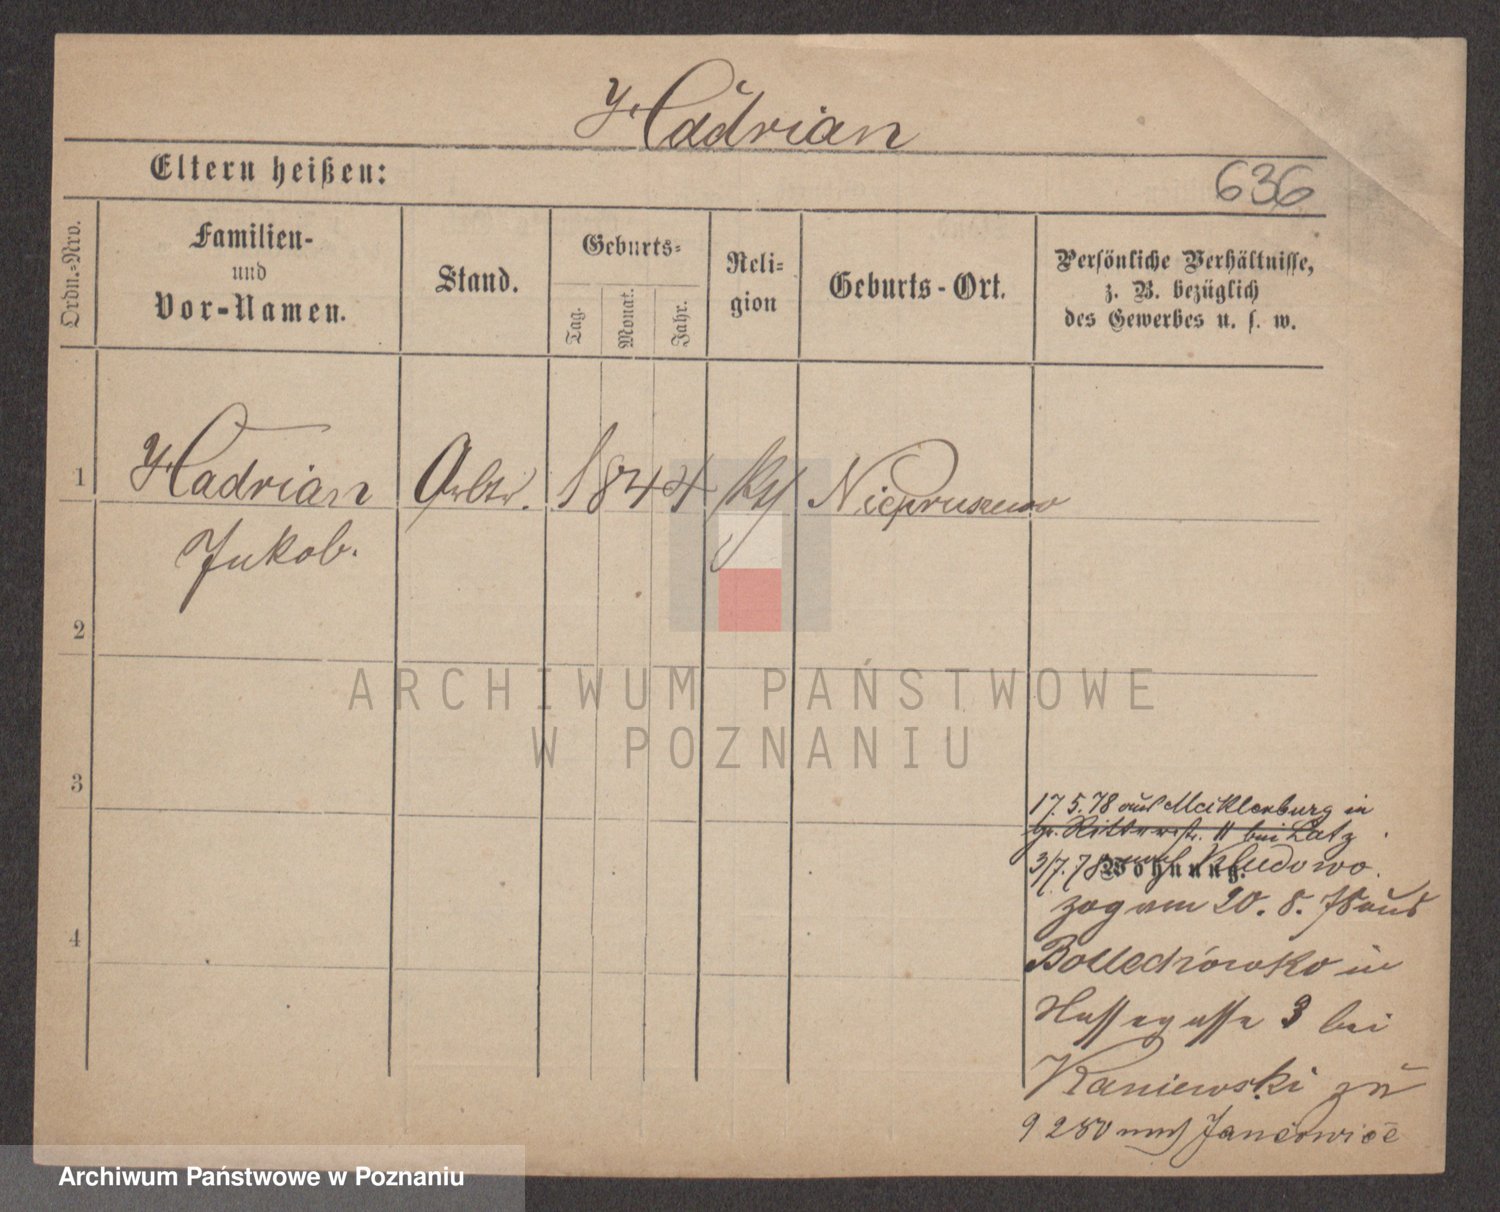 Hadrian
Eltern heißen:
636
Ordn.-Nro.
Familien-
und
Vor-Namen.
Stand.
Geburts-
Tag.
Monat.
Jahr.
Reli-
gion
Geburts-Ort.
Persönliche Verhältnisse,
z. B. bezüglich
des Gewerbes u. s. w.
1 Hadrian Arbtr. 1844 Niepruszewo
Jakob.
2
3
4
17.5.78 aus Mecklenburg in
gr. Ritterstr. 11 bei Latz
3/7.78 nach Chludowo.
Wohnung.
zog am 20. 8. 78 aus
in
3 bei
Kaniewski zu
9 280 nach Jankowice
ARCHIWUM PAŃSTWOWE
W POZNANIU
Archiwum Państwowe w Poznaniu